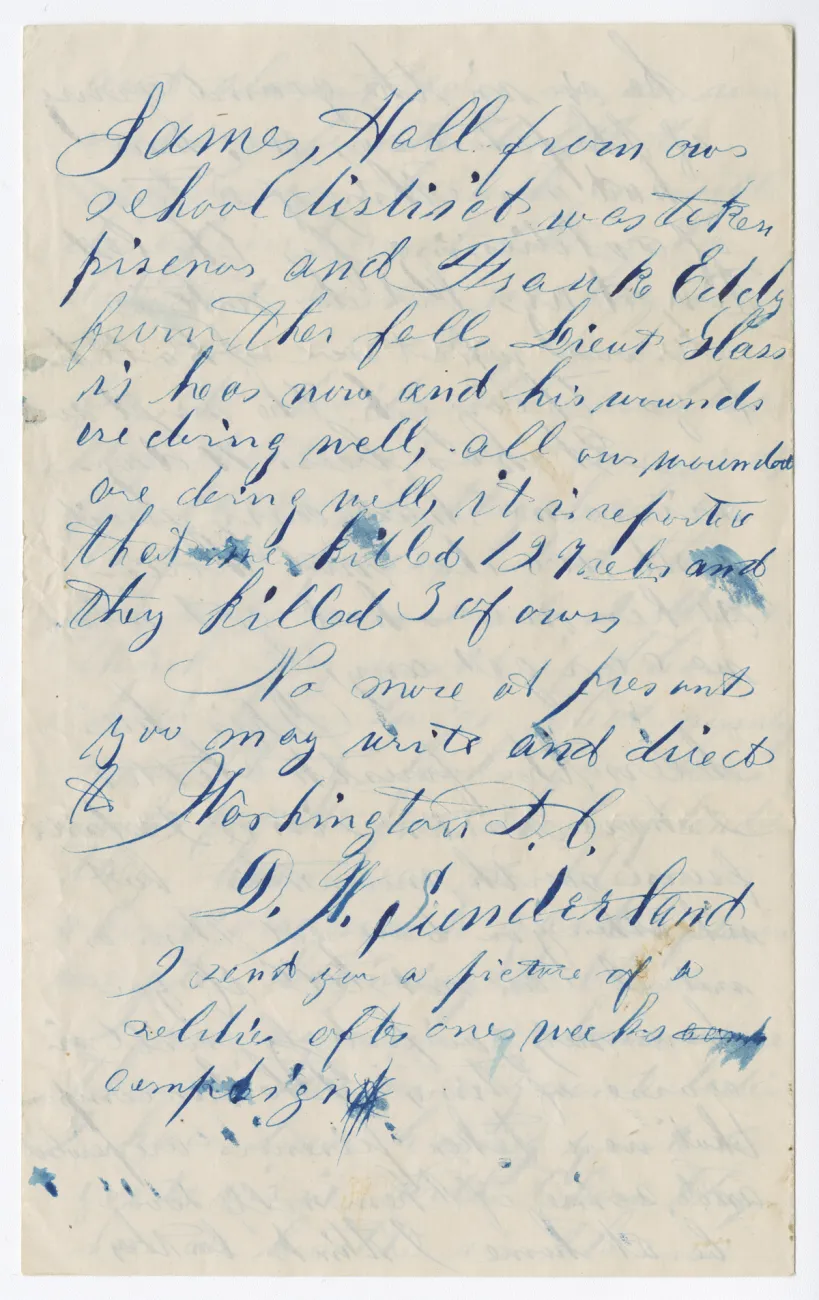 James, Hall from our
school district was taken
prisenor and Frank Eddy
from ther falls Lieut Glass
is hear now and his wounds
are doing well, all our wounded
are doing well, it is reported
that we killed 127 rebs and
they killed 3 of ours
No more at present
you may write and direct
to Washington D.C.
D. W. Sunderland
I send you a picture of a
soldier after ones weeks
campaign